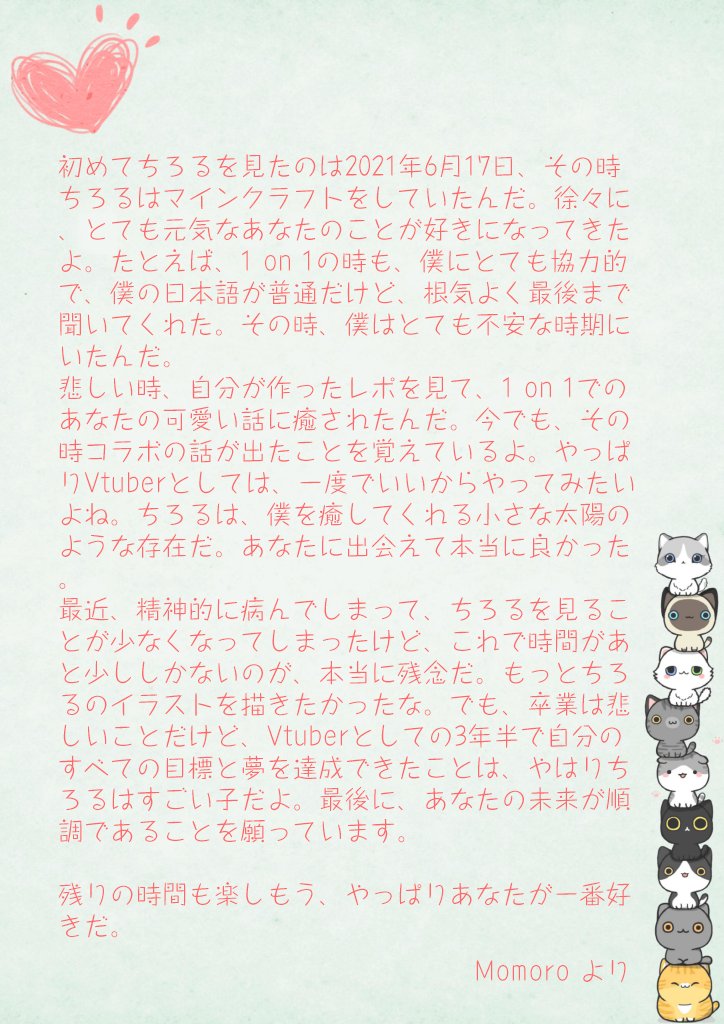 初めてちろるを見たのは2021年6月17日、その時
ちろるはマインクラフトをしていたんだ。徐々に
、とても元気なあなたのことが好きになってきた
よ。たとえば、1 on 1の時も、僕にとても協力的
で、僕の日本語が普通だけど、根気よく最後まで
聞いてくれた。その時、僕はとても不安な時期に
いたんだ。
悲しい時、自分が作ったレポを見て、1 on 1での
あなたの可愛い話に癒されたんだ。今でも、その
時コラボの話が出たことを覚えているよ。やっぱ
りVtuberとしては、一度でいいからやってみたい
よね。ちろるは、僕を癒してくれる小さな太陽の
ような存在だ。あなたに出会えて本当に良かった
。
最近、精神的に病んでしまって、ちろるを見るこ
とが少なくなってしまったけど、これで時間があ
と少ししかないのが、本当に残念だ。もっとちろ
るのイラストを描きたかったな。でも、卒業は悲
しいことだけど、Vtuberとしての3年半で自分の
すべての目標と夢を達成できたことは、やはりち
ろるはすごい子だよ。最後に、あなたの未来が順
調であることを願っています。
残りの時間も楽しもう、やっぱりあなたが一番好
きだ。
Momoro より